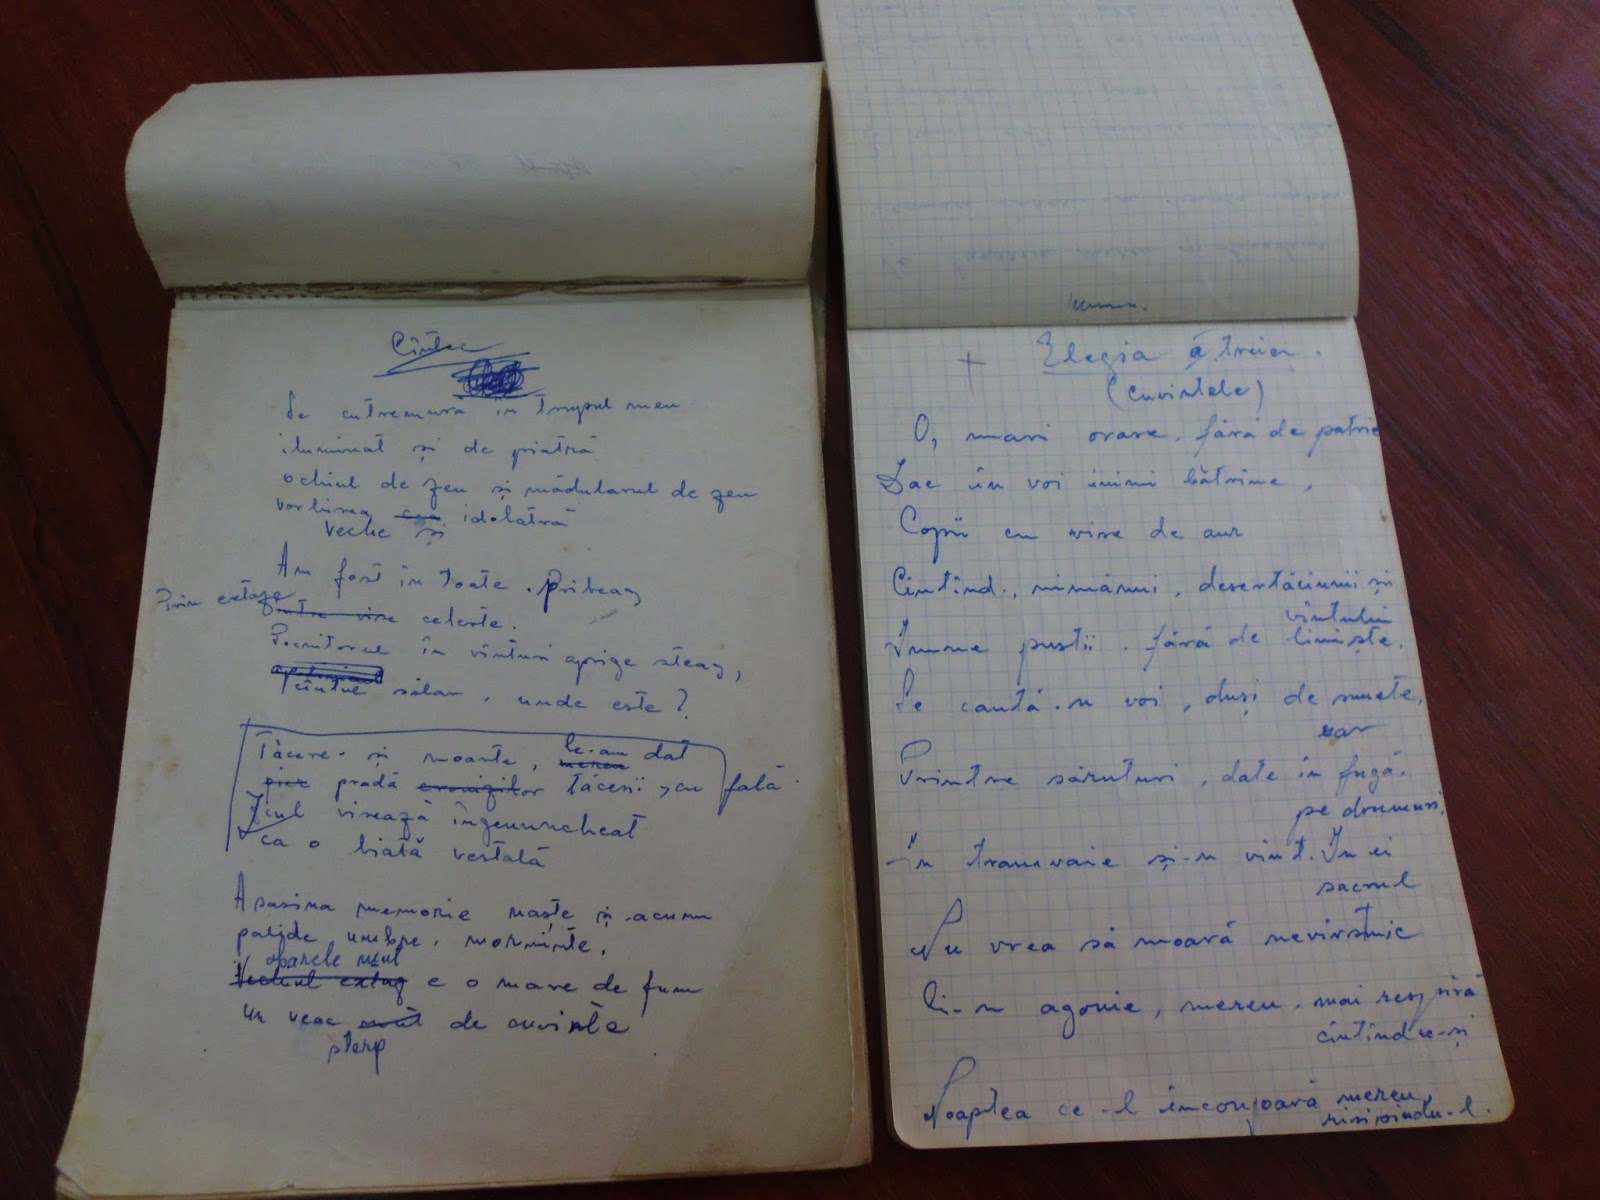 Cîntec
Se cutremură în trupul meu
iluminat și de piatră
ochiul de zeu și mădularul de zeu
vorbirea idolatră
veche și
Am fost în toate. Pribeag
Prin extaze
între vise celeste.
în vînturi aprige steag,
țintul sălan, unde este?
Tăcere și moarte, le-am dat
mereu
pradă tăcerii, cu fală
Jeul visează îngenuncheat
ca o biată vestală
Apasina memorie naște și-acum
palide umbre, morminte.
oparele meul
Vechiul extaz e o mare de fum
un veac de cuvinte
sterp
Elegia a treia.
(Cuvintele)
O, mari orașe, fără de patrie
Zac în voi inimi bătrîne,
Copii cu vise de aur
Cîntînd, nimănui, deșertăciunii și
vîntului
Imne pustii, fără de liniște.
Se caută-n voi, duși de sunete,
rar
Printre săruturi, date în fugă,
pe drumuri,
În tramvaie și-n vînt. În ei
sacrul
Nu vrea să moară nevîrstnic
Ci-n agonie, mereu, mai respiră
cîntîndu-și
Noaptea ce-l înconjoară mereu,
risipindu-l.